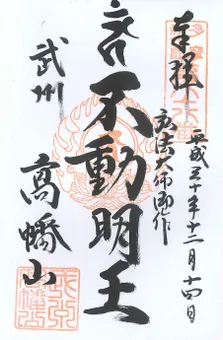 奉拝
平成三十年十二月十四日
弘法大師御作
不動明王
武州
高幡山